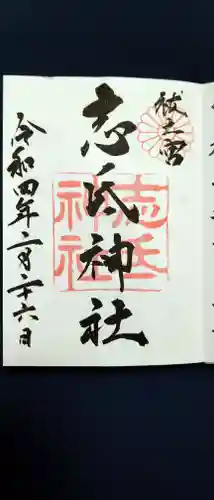 祓之宮
志氐神社
令和四年二月二十六日
志氐神社